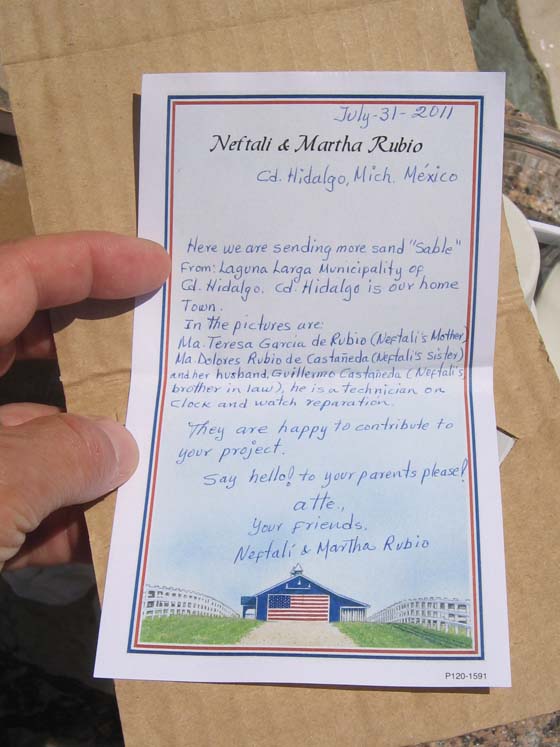 July-31-2011
Neftali & Martha Rubio
Cd. Hidalgo, Mich. México
Here we are sending more sand "Sable"
From: Laguna Larga Municipality of
Cd. Hidalgo. Cd. Hidalgo is our home
Town.
In the pictures are:
Ma. Teresa Garcia de Rubio (Neftali's Mother)
Ma. Dolores Rubio de Castañeda (Neftali's sister)
and her husband, Guillermo Castañeda (Neftali's
brother in law), he is a technician on
Clock and watch reparation.
They are happy to contribute to
your project.
Say hello! to your parents please!
atte.,
Your friends.
Neftalí & Martha Rubio
P120-1591